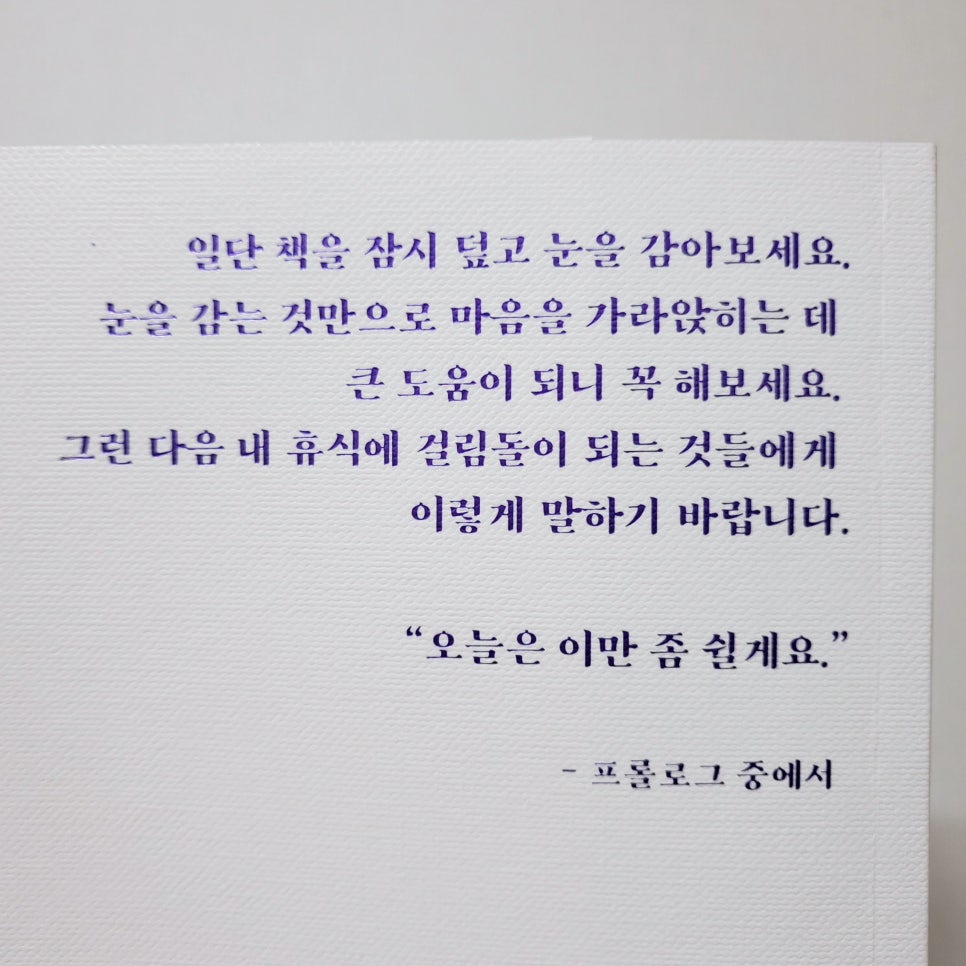 일단 책을 잠시 덮고 눈을 감아보세요.
눈을 감는 것만으로 마음을 가라앉히는 데
큰 도움이 되니 꼭 해보세요.
그런 다음 내 휴식에 걸림돌이 되는 것들에게
이렇게 말하기 바랍니다.
“오늘은 이만 좀 쉴게요.”
- 프롤로그 중에서